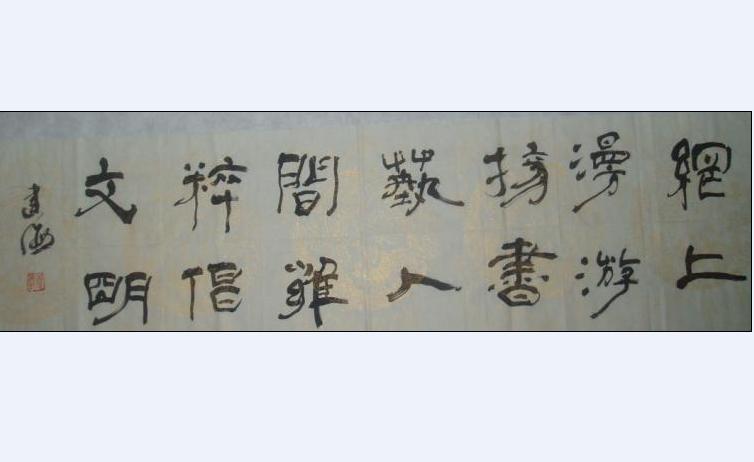 網上
漫游
榜書
藝人
間雅
粹倡
文明
建海